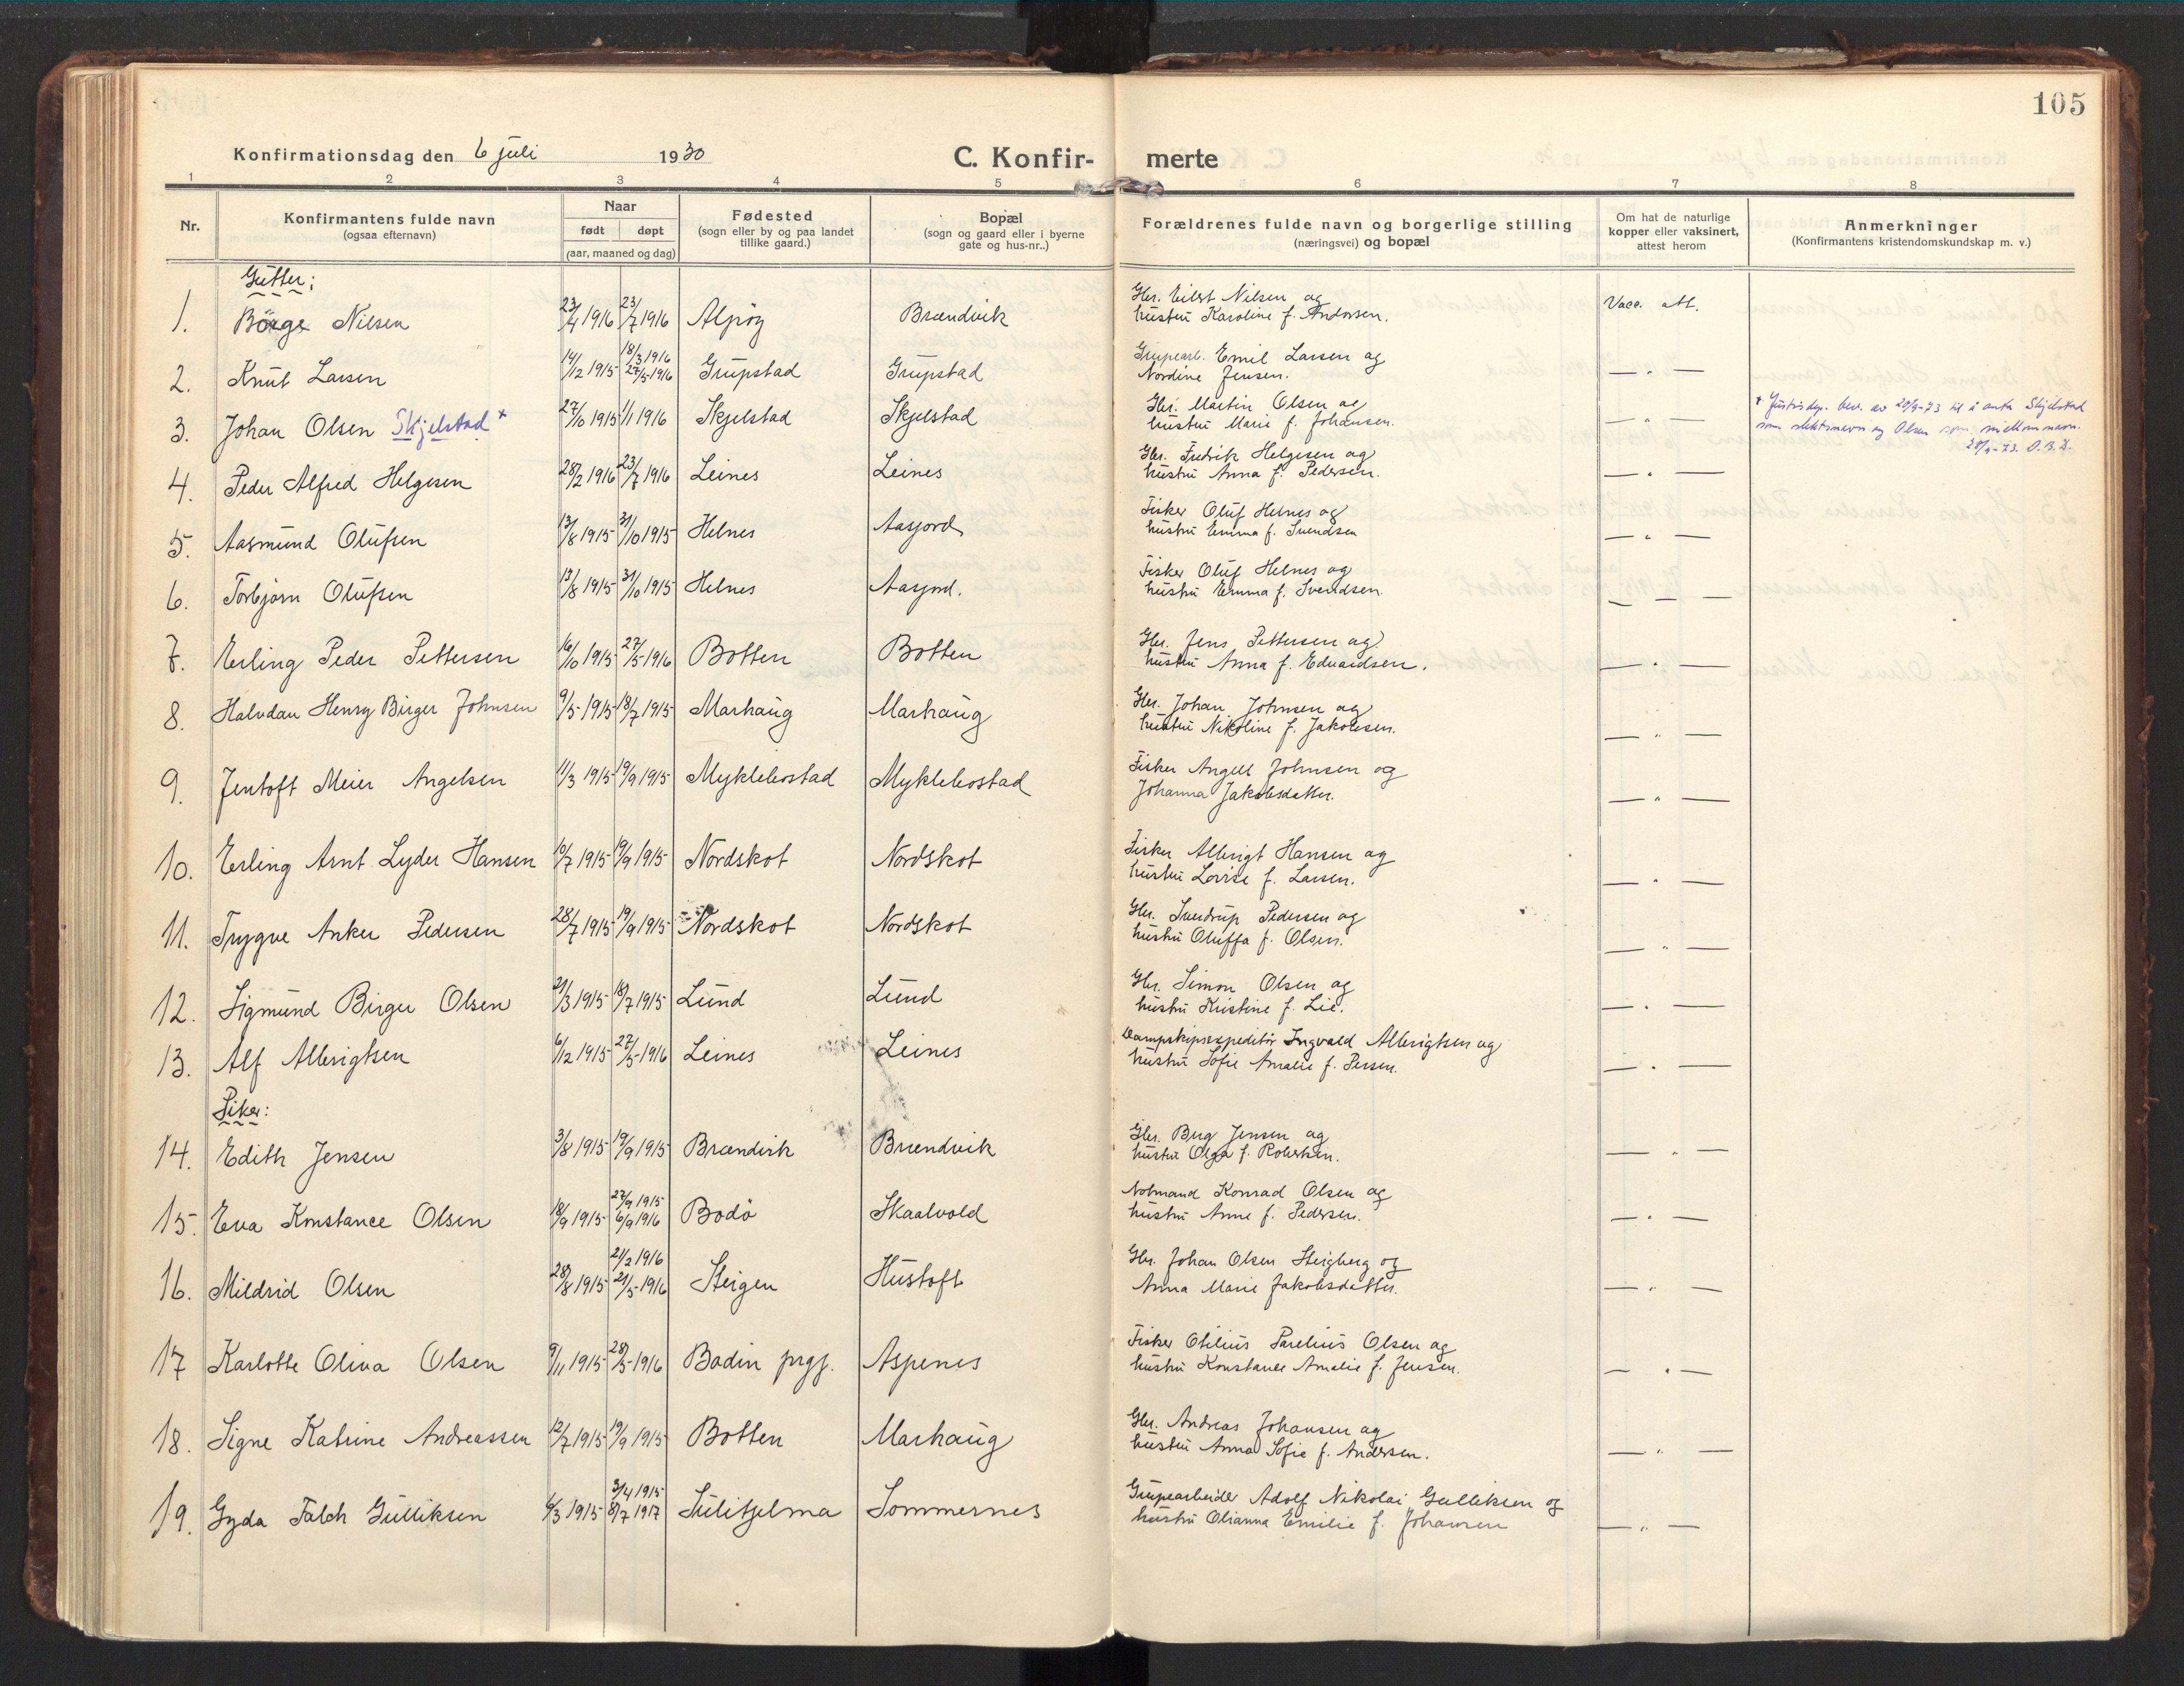 105
Konfirmationsdag den 6 juli 1930
C. Konfir- merte
1 2 3 4 5 6 7 8
Nr.
Konfirmantens fulde navn
(ogsaa efternavn)
Naar
født døpt
(aar, maaned og dag)
Fødested
(sogn eller by og paa landet
tillike gaard.)
Bopæl
(sogn og gaard eller i byerne
gate og hus-nr..)
Forældrenes fulde navn og borgerlige stilling
(næringsvei) og bopæl
Om hat de naturlige
kopper eller vaksinert,
attest herom
Anmerkninger
(Konfirmantens kristendomskundskap m. v.)
Gutter:
1. Börge Nilsen 23/4 1916 23/7 1916 Alpöy Brændvik Gbr. Eilert Nilsen og
hustru Karoline f. Andorsen. Vacc. att.
2. Knut Larsen 14/12 1915 18/3 1916
27/5-1916 Grupstad Grupstad Grupearb. Emil Larsen og
Nordine Jensen. — " —
3. Johan Olsen Skjelstad + 27/10 1915 1/1 1916 Skjelstad Skjelstad Gbr. Martin Olsen og
hustru Marie f. Johansen. — " —
+ Justisdep. bev. av 20/9-73 til å anta Skjelstad
som slektsnavn og Olsen som mellomnavn.
28/9-73. O.B.D.
4. Peder Alfred Helgesen 28/2 1916 23/7 1916 Leines Leines Gbr. Fredrik Helgesen og
hustru Anna f. Pedersen. — " —
5. Aasmund Olufsen 13/8 1915 31/10 1915 Helnes Aasjord Fisker Oluf Helnes og
hustru Emma f. Svendsen — " —
6. Torbjørn Olufsen 13/8 1915 31/10 1915 Helnes Aasjord. Fisker Oluf Helnes og
hustru Emma f. Svendsen. — — —
7. Erling Peder Pettersen 16/10 1915 27/5-1916 Botten Botten Gbr. Jens Pettersen og
hustru Anna f. Edvardsen. — " —
8. Halvdan Henry Birger Johnsen 9/5-1915 18/7 1915 Marhaug Marhaug Gbr. Johan Johnsen og
hustru Nikoline f. Jakobsen. — " —
9. Jentoft Meier Angelsen 11/3 1915 19/9 1915 Myklebostad Myklebostad Fisker Angell Johnsen og
Johanna Jakobsdatter. — " —
10. Erling Arnt Lyder Hansen 10/7 1915 19/9 1915 Nordskot Nordskot Fisker Albrigt Hansen og
hustru Lovise f. Larsen. — " —
11. Trygve Anker Pedersen 28/7 1915 19/9 1915 Nordskot Nordskot Gbr. Sverdrup Pedersen og
hustru Oluffa f. Olsen. — " —
12. Sigmund Birger Olsen 21/3 1915 18/7 1915 Lund Lund Gbr. Simon Olsen og
hustru Kristine f. Lie. — " —
13. Alf Albrigtsen 6/12 1915 27/5-1916 Leines Leines Dampskipsexpeditör Ingvald Albrigtsen og
hustru Sofie Amalie f. Persen. — " —
Piker:
14. Edith Jensen 3/8 1915 19/9 1915 Brændvik Brændvik Gbr. Berg Jensen og
hustru Olga f. Robertsen. — " —
15. Eva Konstance Olsen 18/9 1915 27/9 1915
6/9 1916 Bodö Skaalvold Notmand Konrad Olsen og
hustru Anne f. Pedersen. — " —
16. Mildrid Olsen 28/8 1915 21/2 1916
21/5-1916 Steigen Hustoft Gbr. Johan Olsen Steigberg og
Anna Marie Jakobsdatter. — " —
17 Karlotte Oliva Olsen 9/11 1915 28/5-1916 Bodin prgj. Aspenes Fisker Otelius Parelius Olsen og
hustru Konstance Amalie f. Jensen. — " —
18. Signe Katrine Andreassen 12/7 1915 19/9 1915 Botten Marhaug Gbr. Andreas Johansen og
hustru Anna Sofie f. Andersen. — " —
19. Gyda Falch Gulliksen 6/3 1915 3/4 1915
8/7 1917 Sulitjelma Sommernes Grupearbeider Adolf Nikolai Gulliksen og
hustru Olianna Emilie f. Johansen — " —